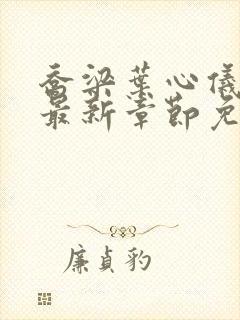 乔梁葉心儀
最新章節免
廉貞豹